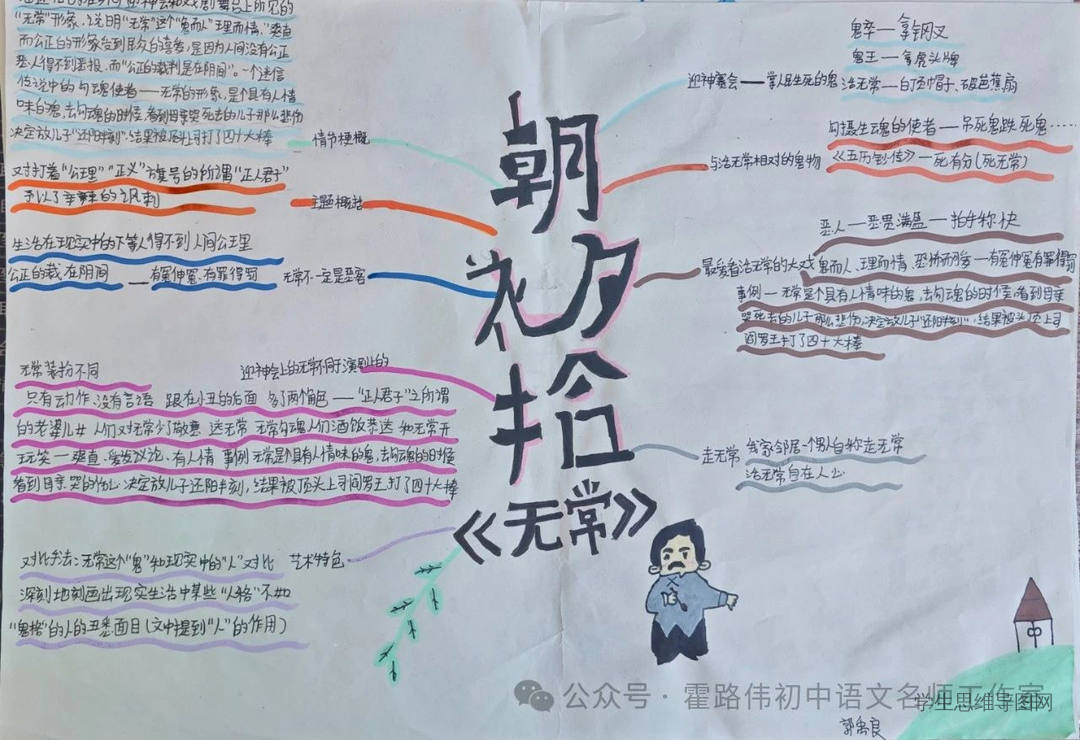 "无常"形象,说明"无常"这个"鬼而人,理而情","爽直
而公正的形象
恶人得不到恶报,而"公正的裁判是在阴间"。一个迷信
传说中的勾魂使者——无常的形象,是个具有人情
味的鬼,去勾魂的时候,看到母亲哭死去的儿子那么悲伤
决定放儿子"还阳半刻",结果被顶头上司打了四十大棒
情节梗概
对打着"公理""正义"旗号的所谓"正人君子"
予以了辛辣的讽刺
主题概括
生活在现实中的下等人得不到人间公理
公正的裁在阴间——有冤伸冤,有罪得罚
无常不一定是恶客
无常装扮不同
迎神会上的无常不同于演剧上的
只有动作,没有言语 跟在小丑的后面 多了两个角色——"正人君子"之所谓
的老婆儿女 人们对无常少了敬意 送无常 无常勾魂人们酒饭恭送 和无常开
玩笑—爽直,爱发议论,有人情 事例 无常是个具有人情味的鬼,去勾魂的时候
看到母亲哭的伤心,决定放儿子还阳半刻,结果被顶头上司阎罗王打了四十大棒
对比手法:无常这个"鬼"和现实中的"人"对比
艺术特色
深刻地刻画出现实生活中某些"人格"不如
"鬼格"的人的丑恶面目(文中提到"人"的作用)
朝
花夕
拾
《无常》
鬼卒—拿钢叉
鬼王—拿虎头牌
迎神赛会—掌人民生死的鬼
活无常—白顶帽子、破芭蕉扇
勾摄生魂的使者—吊死鬼跌死鬼……
与活无常相对的鬼物
《玉历钞传》—死有份(死无常)
恶人—恶贯满盈—拍手称快
最爱看活无常的大戏
鬼而人,理而情,恐怖而可爱—有冤伸冤有罪得罚
事例—无常是个具有人情味的鬼,去勾魂的时候,看到母亲
哭死去的儿子那么悲伤,决定放儿子"还阳半刻",结果被头顶上司
阎罗王打了四十大棒
走无常
我家邻居一个男人自称走无常
活无常自在人心
公众号·霍路伟初中语文名师工作室
学生思维导图网